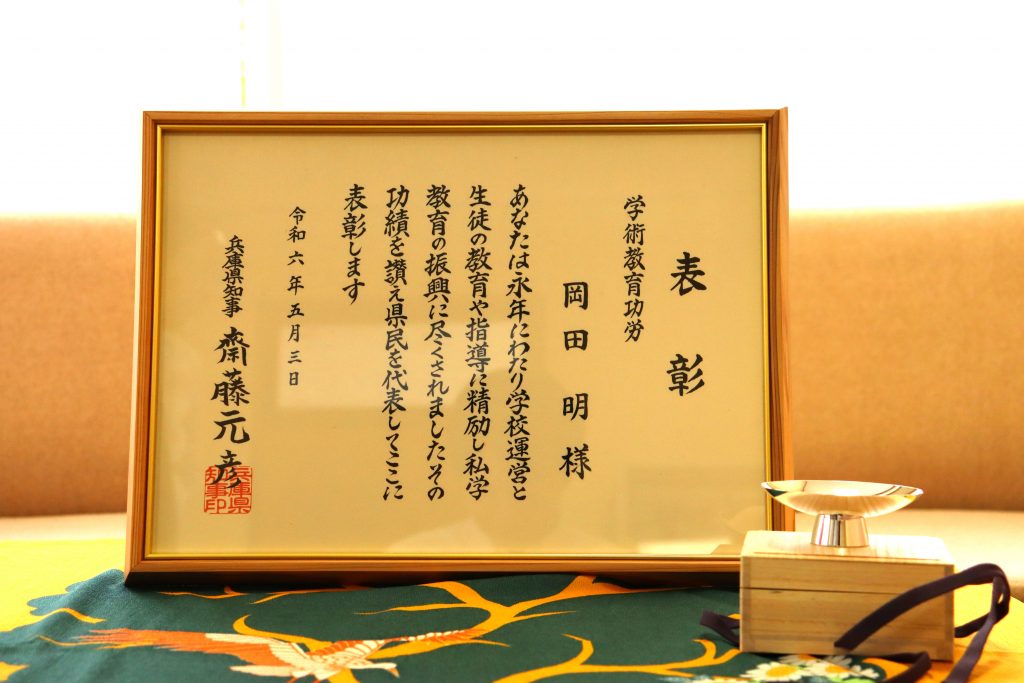 表彰
学術教育功労
岡田明様
あなたは永年にわたり学校運営と
生徒の教育や指導に精励し私学
教育の振興に尽くされましたその
功績を讃え県民を代表してここに
表彰します
令和六年五月三日
兵庫県知事 齋藤元彦
兵庫県
知事印